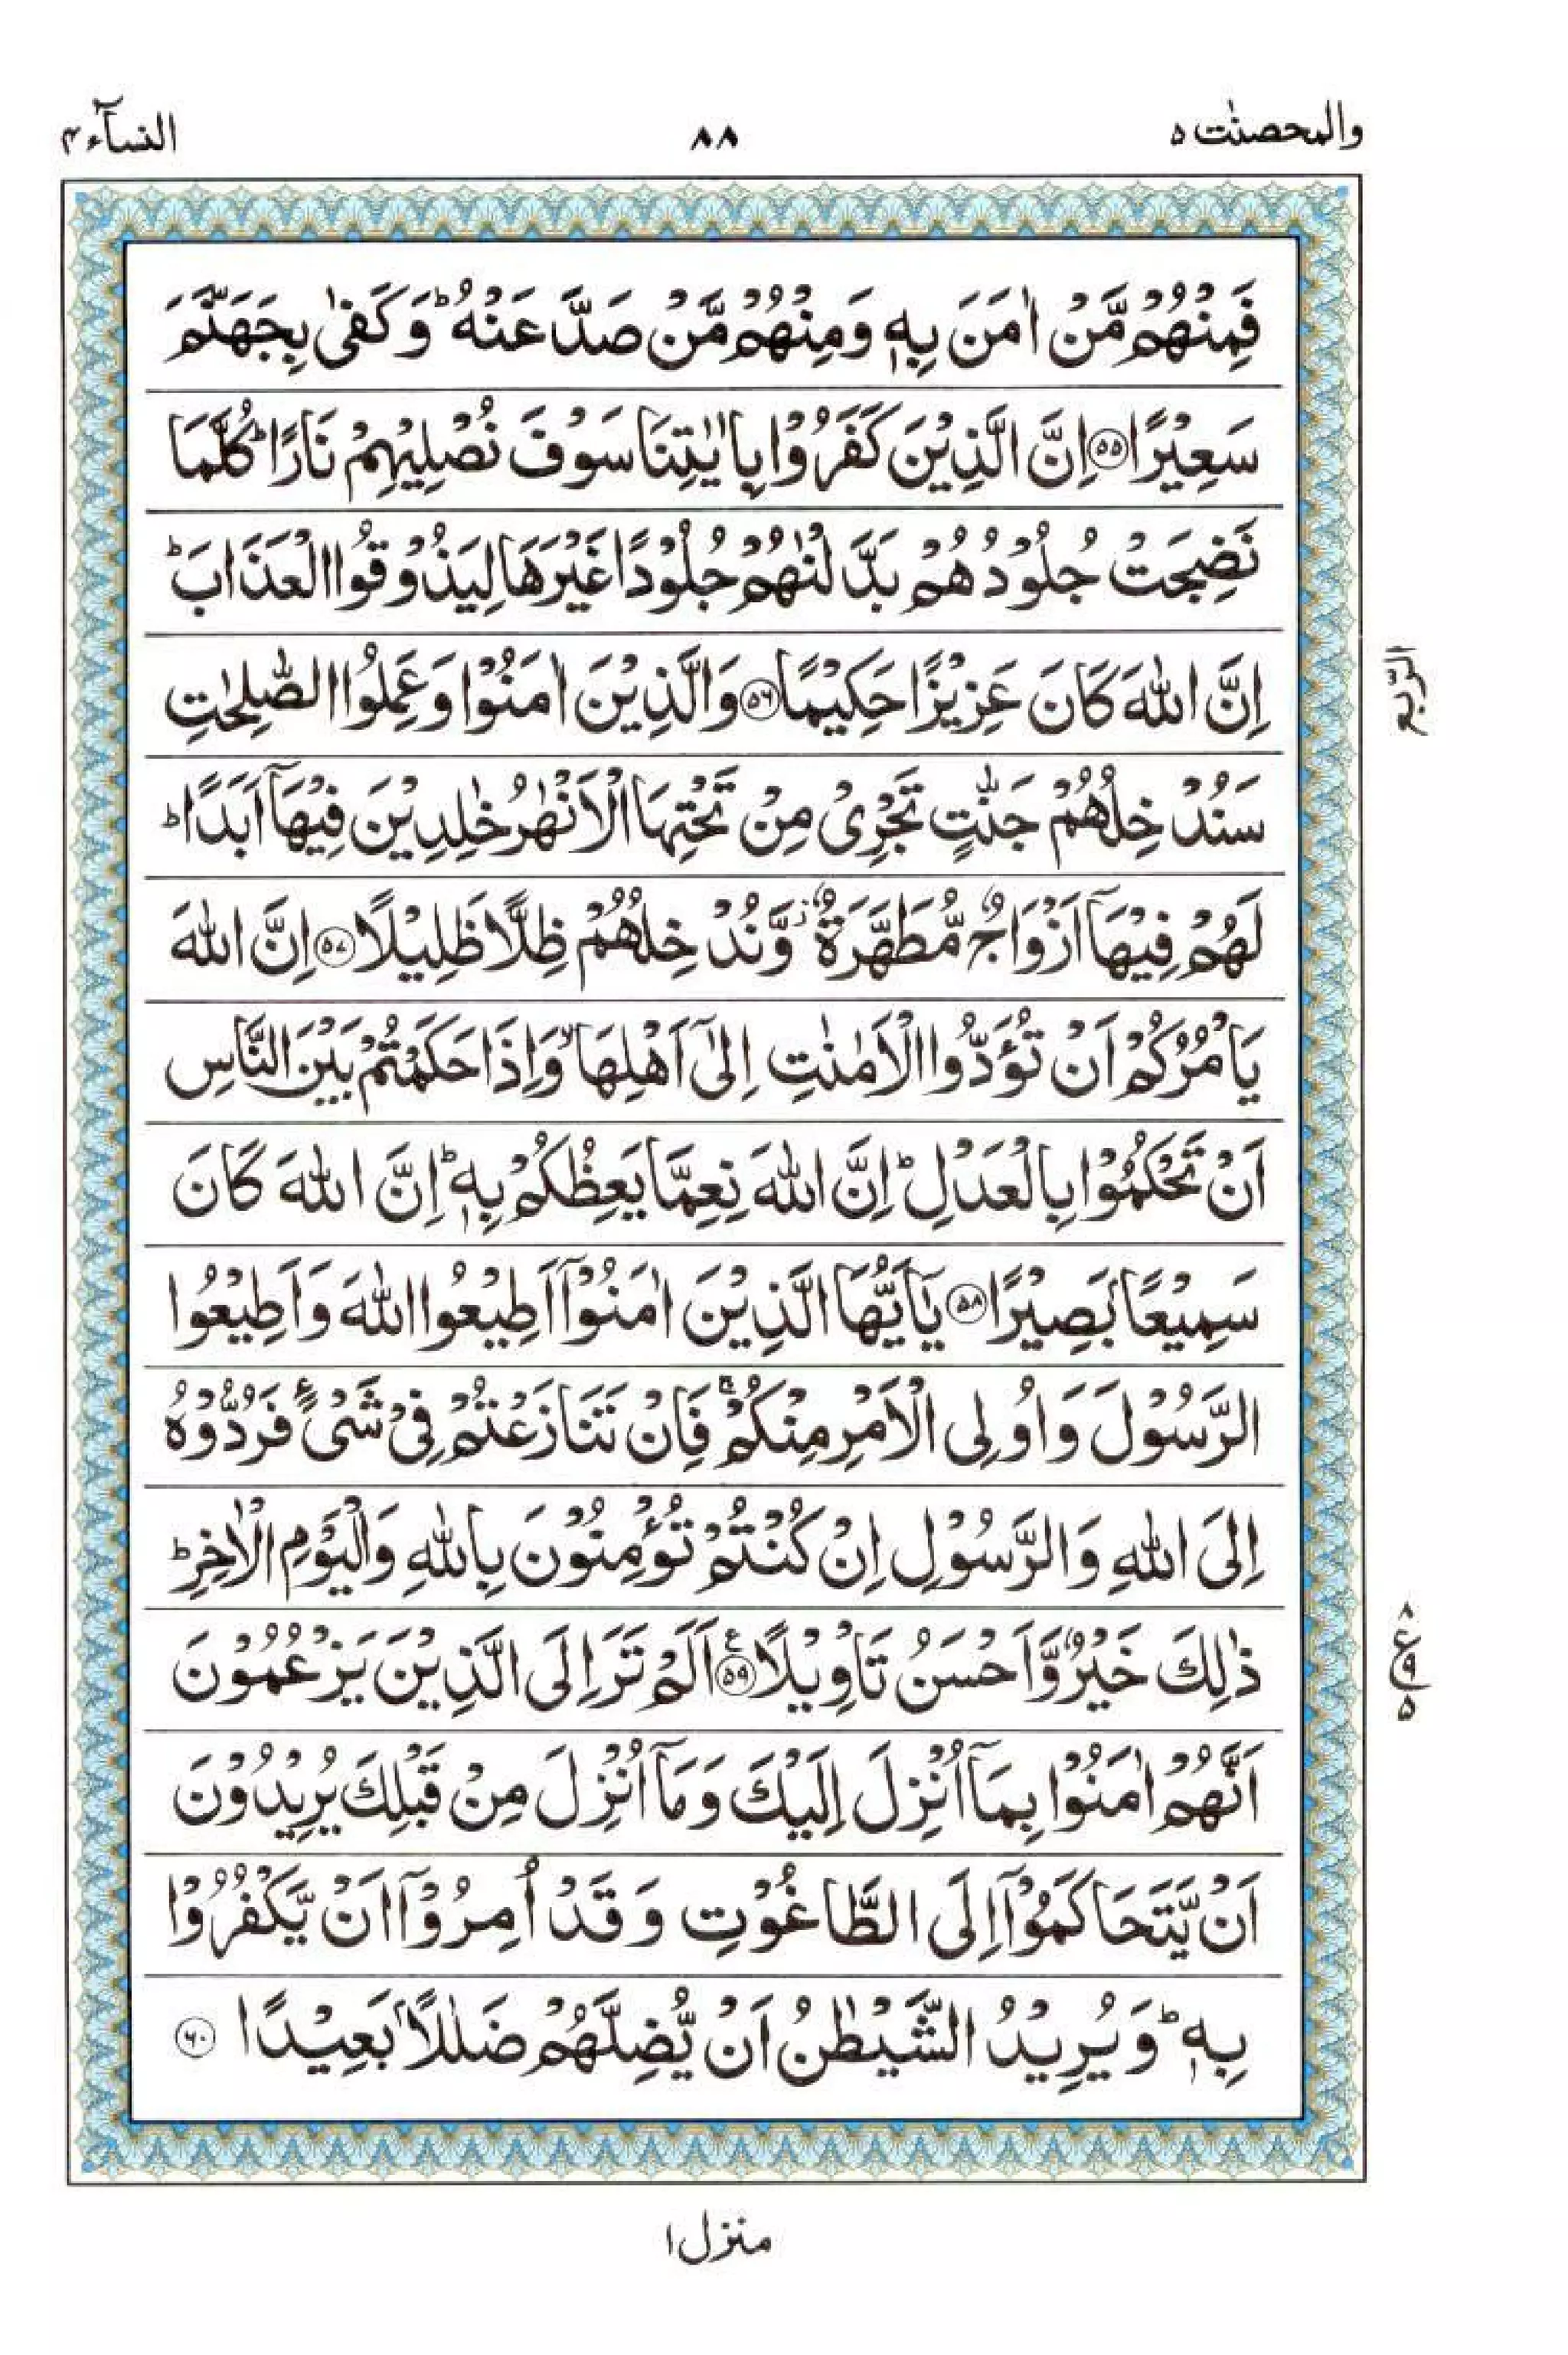 والمحصنٰت ۵ ۸۸ النسآء ۴
فَمِنْهُمْ مَّنْ اٰمَنَ بِهٖ وَمِنْهُمْ مَّنْ صَدَّ عَنْهُ ؕ وَكَفٰى بِجَهَنَّمَ
سَعِيْرًا ۵۵ اِنَّ الَّذِيْنَ كَفَرُوْا بِاٰيٰتِنَا سَوْفَ نُصْلِيْهِمْ نَارًا ؕ كُلَّمَا
نَضِجَتْ جُلُوْدُهُمْ بَدَّلْنٰهُمْ جُلُوْدًا غَيْرَهَا لِيَذُوْقُوا الْعَذَابَ ؕ
اِنَّ اللّٰهَ كَانَ عَزِيْزًا حَكِيْمًا ۵۶ وَالَّذِيْنَ اٰمَنُوْا وَعَمِلُوا الصّٰلِحٰتِ
الرّبع
سَنُدْخِلُهُمْ جَنّٰتٍ تَجْرِىْ مِنْ تَحْتِهَا الْاَنْهٰرُ خٰلِدِيْنَ فِيْهَاۤ اَبَدًا ؕ
لَهُمْ فِيْهَاۤ اَزْوَاجٌ مُّطَهَّرَةٌ ؗ وَّنُدْخِلُهُمْ ظِلًّا ظَلِيْلًا ۵۷ اِنَّ اللّٰهَ
يَاْمُرُكُمْ اَنْ تُؤَدُّوا الْاَمٰنٰتِ اِلٰٓى اَهْلِهَا ۙ وَاِذَا حَكَمْتُمْ بَيْنَ النَّاسِ
اَنْ تَحْكُمُوْا بِالْعَدْلِ ؕ اِنَّ اللّٰهَ نِعِمَّا يَعِظُكُمْ بِهٖ ؕ اِنَّ اللّٰهَ كَانَ
سَمِيْعًاۢ بَصِيْرًا ۵۸ يٰۤاَيُّهَا الَّذِيْنَ اٰمَنُوْۤا اَطِيْعُوا اللّٰهَ وَاَطِيْعُوا
الرَّسُوْلَ وَاُولِى الْاَمْرِ مِنْكُمْ ۚ فَاِنْ تَنَازَعْتُمْ فِىْ شَىْءٍ فَرُدُّوْهُ
اِلَى اللّٰهِ وَالرَّسُوْلِ اِنْ كُنْتُمْ تُؤْمِنُوْنَ بِاللّٰهِ وَالْيَوْمِ الْاٰخِرِ ؕ
ذٰلِكَ خَيْرٌ وَّاَحْسَنُ تَاْوِيْلًا ۵۹ ع اَلَمْ تَرَ اِلَى الَّذِيْنَ يَزْعُمُوْنَ
۸ ع ۹ ۵
اَنَّهُمْ اٰمَنُوْا بِمَاۤ اُنْزِلَ اِلَيْكَ وَمَاۤ اُنْزِلَ مِنْ قَبْلِكَ يُرِيْدُوْنَ
اَنْ يَّتَحَاكَمُوْۤا اِلَى الطَّاغُوْتِ وَقَدْ اُمِرُوْۤا اَنْ يَّكْفُرُوْا
بِهٖ ؕ وَيُرِيْدُ الشَّيْطٰنُ اَنْ يُّضِلَّهُمْ ضَلٰلًاۢ بَعِيْدًا ۶۰
منزل ۱